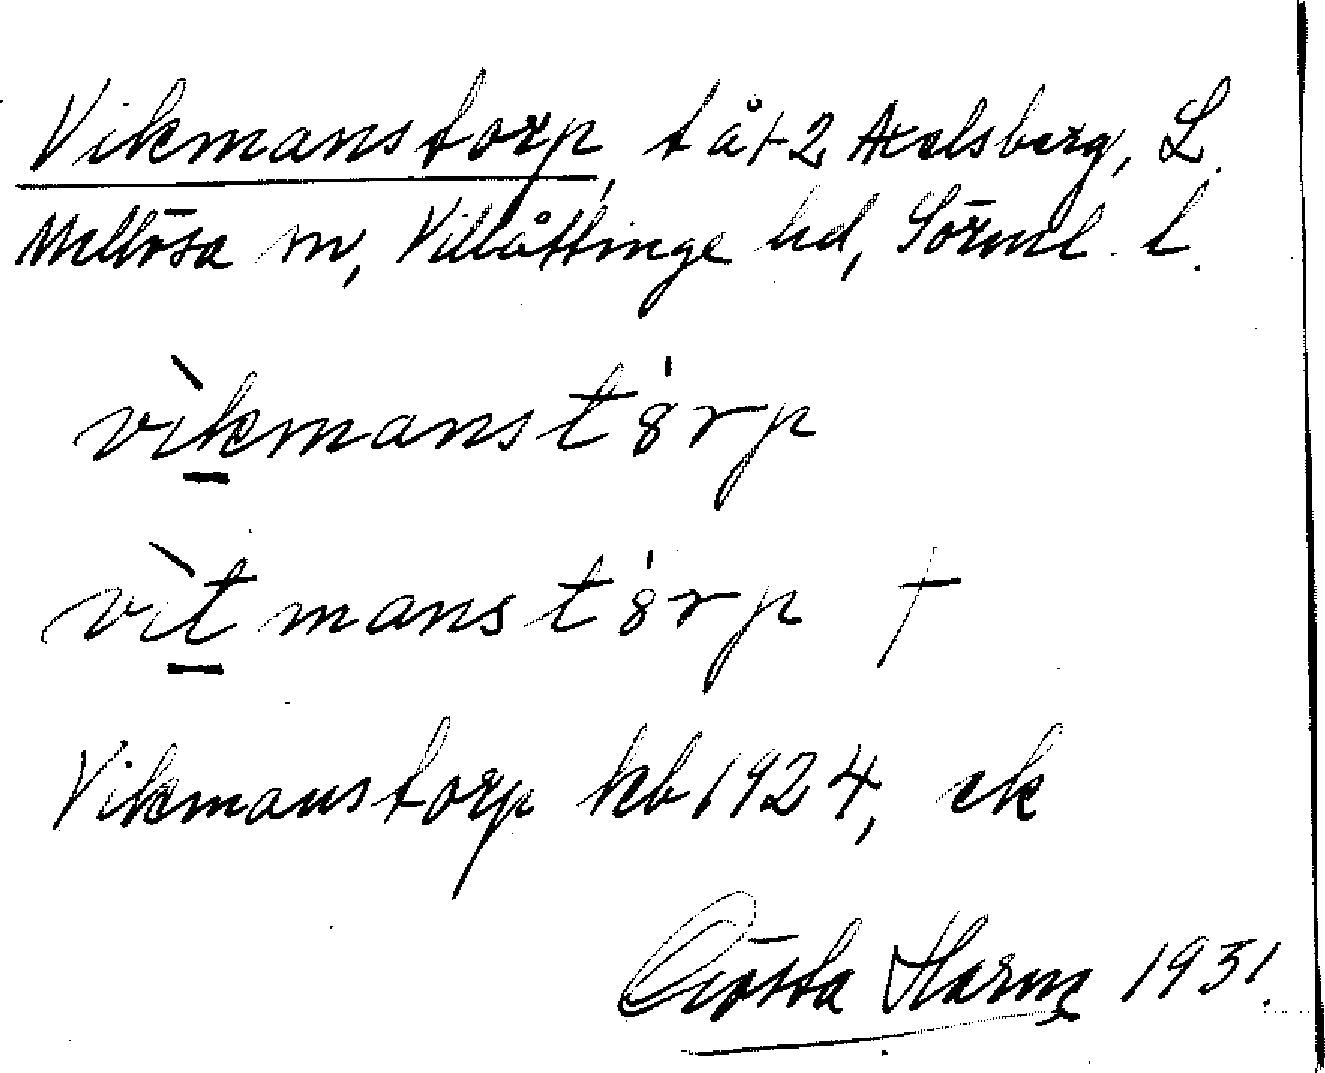 Vikmanstorp, t åt 2 Axelsberg, L.
Mellösa sn, Villåttinge hd, Sörml. l.
vìkmanstȣ́rp
vìtmanstȣ́rp †
Vikmanstorp kb 1924, ek
Gösta Harm 1931.